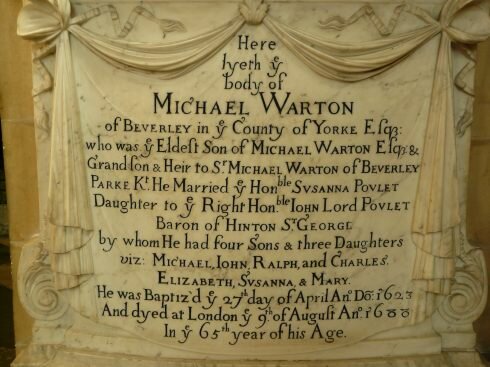 Here
lyeth yͤ
body of
MICHAEL WARTON
of BEVERLEY in yͤ County of YORKE Eſqꝫ:
who was yͤ Eldeſt Son of MICHAEL WARTON Eſqꝫ: &
Grandſon & Heir to Sͬ MICHAEL WARTON of BEVERLEY
PARKE Kᵗ. He Married yͤ Honᵇˡᵉ SVSANNA POVLET
Daughter to yͤ Right Hon:ᵇˡᵉ IOHN Lord POVLET
Baron of HINTON Sᵀ GEORGE
by whom He had four Sons & three Daughters
viz: MICHAEL, IOHN, RALPH, and CHARLES.
ELIZABETH, SVSANNA, & MARY.
He was Baptiz'd yͤ 27ᵗʰ day of April Anº. Dº: 1623
And dyed at London yͤ 9ᵗʰ of Auguſt Anº. 1688
In yͤ 65ᵗʰ year of his Age.